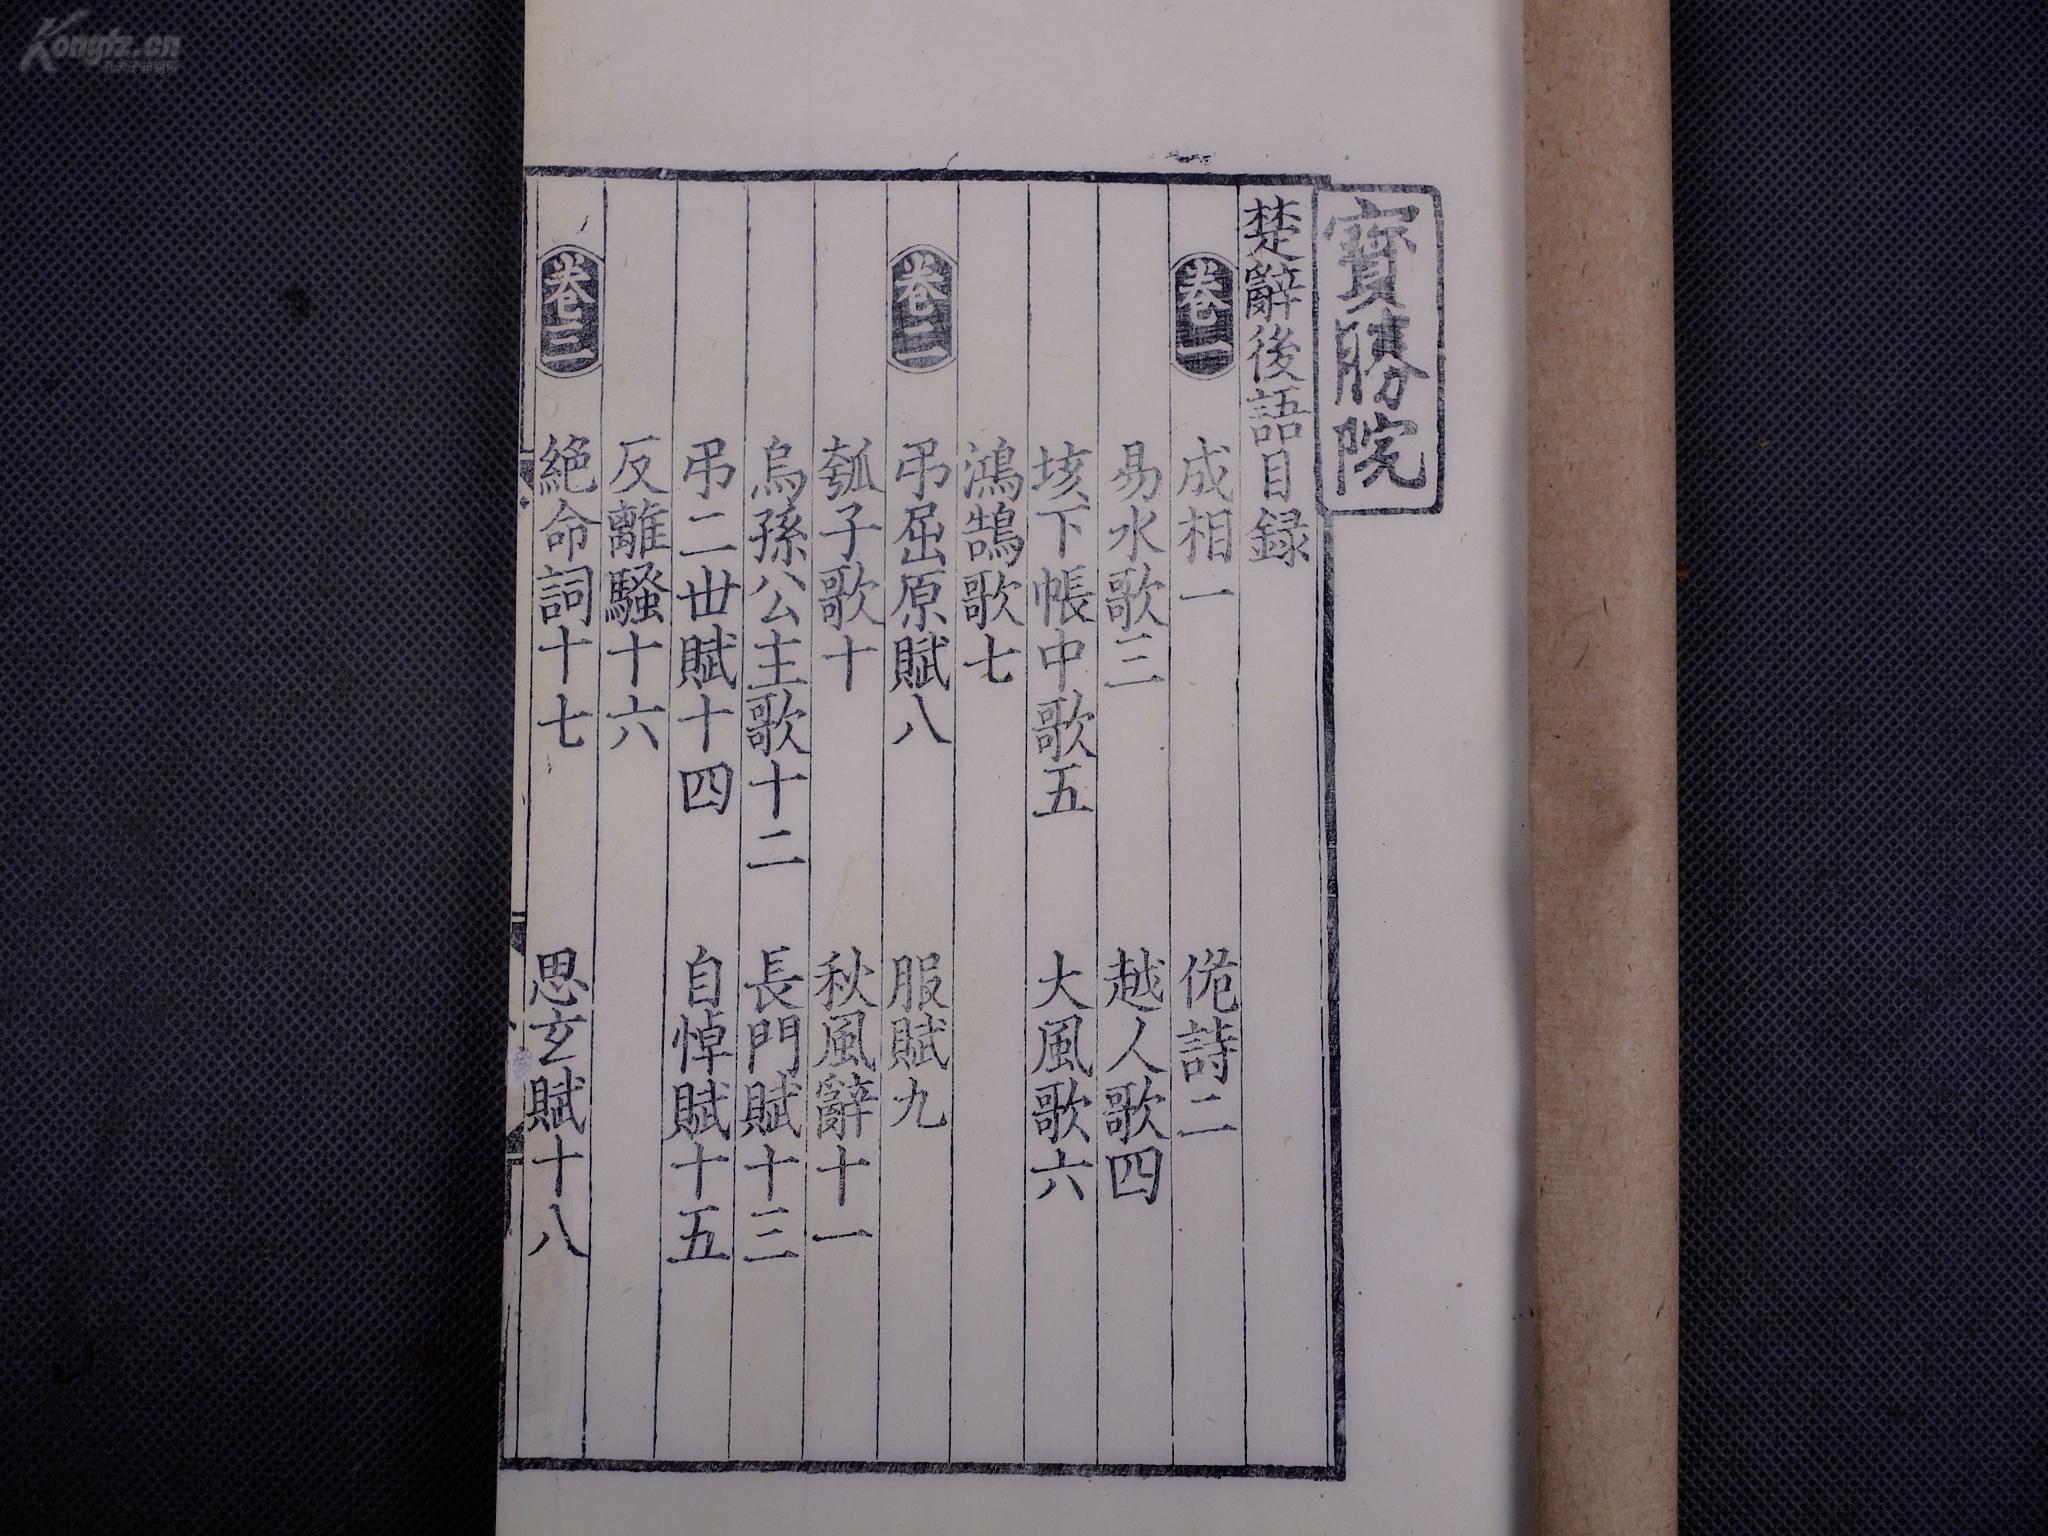 寳勝院
楚辭後語目録
卷一
成相一 佹詩二
易水歌三 越人歌四
垓下帳中歌五 大風歌六
鴻鵠歌七
卷二
弔屈原賦八 服賦九
瓠子歌十 秋風辭十一
烏孫公主歌十二 長門賦十三
弔二世賦十四 自悼賦十五
反離騷十六
卷三
絕命詞十七 思玄賦十八
Kongfz.cn
孔夫子旧书网